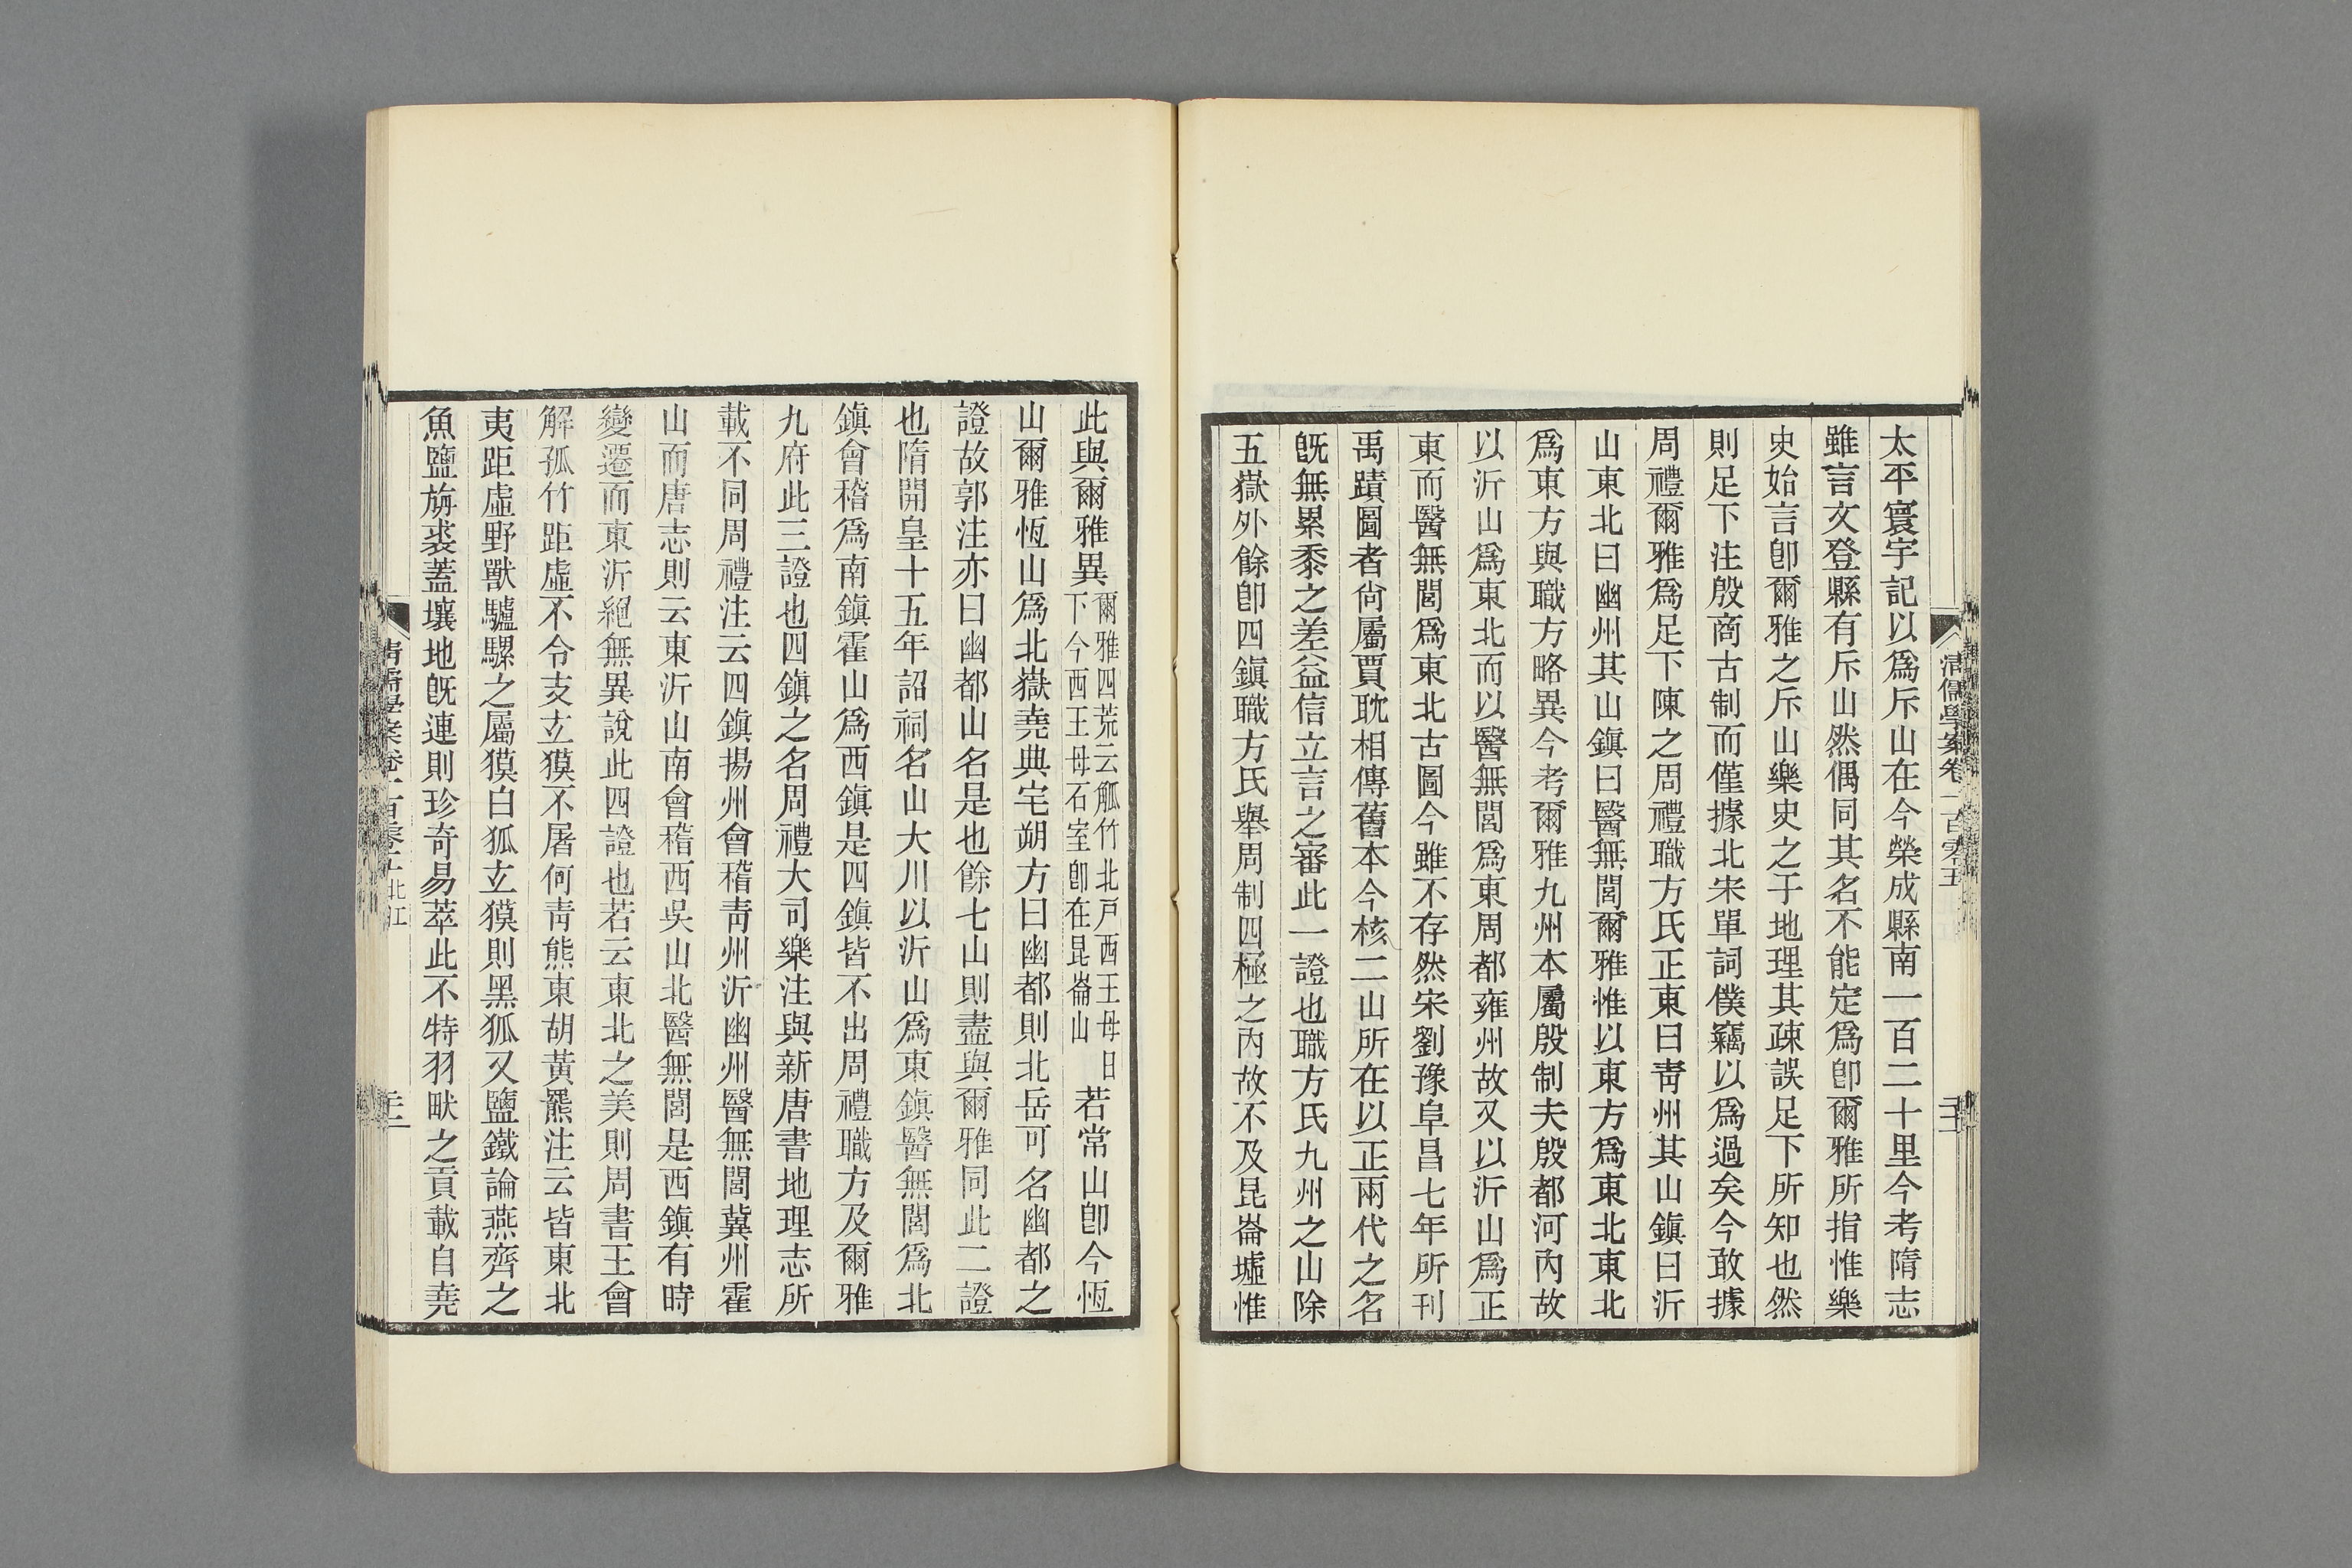 太平寰宇記以爲斥山在今榮成縣南一百二十里今考隋志
雖言文登縣有斥山然偶同其名不能定爲卽爾雅所指惟樂
史始言卽爾雅之斥山樂史之于地理其疎誤足下所知也然
則足下注殷商古制而僅據北宋單詞僕竊以爲過矣今敢據
周禮爾雅爲足下陳之周禮職方氏正東曰靑州其山鎭曰沂
山東北曰幽州其山鎭曰醫無閭爾雅惟以東方爲東北東北
爲東方與職方略異今考爾雅九州本屬殷制夫殷都河內故
以沂山爲東北而以醫無閭爲東周都雍州故又以沂山爲正
東而醫無閭爲東北古圖今雖不存然宋劉豫阜昌七年所刊
禹蹟圖者尙屬賈耽相傳舊本今核二山所在以正兩代之名
旣無累黍之差益信立言之審此一證也職方氏九州之山除
五嶽外餘卽四鎭職方氏舉周制四極之內故不及昆崙墟惟
清儒學案卷一百零五
此與爾雅異爾雅四荒云觚竹北戸西王母日下今西王母石室卽在昆崙山若常山卽今恆
山爾雅恆山爲北嶽堯典宅朔方曰幽都則北岳可名幽都之
證故郭注亦曰幽都山名是也餘七山則盡與爾雅同此二證
也隋開皇十五年詔祠名山大川以沂山爲東鎭醫無閭爲北
鎭會稽爲南鎭霍山爲西鎭是四鎭皆不出周禮職方及爾雅
九府此三證也四鎭之名周禮大司樂注與新唐書地理志所
載不同周禮注云四鎭揚州會稽靑州沂幽州醫無閭冀州霍
山而唐志則云東沂山南會稽西吳山北醫無閭是西鎭有時
變遷而東沂絕無異說此四證也若云東北之美則周書王會
解孤竹距虛不令支玄獏不屠何靑熊東胡黃羆注云皆東北
夷距虛野獸驢騾之屬獏白狐玄獏則黑狐又鹽鐵論燕齊之
魚鹽旃裘蓋壤地旣連則珍奇易萃此不特羽畎之貢載自堯
清儒學案卷一百零五 北江